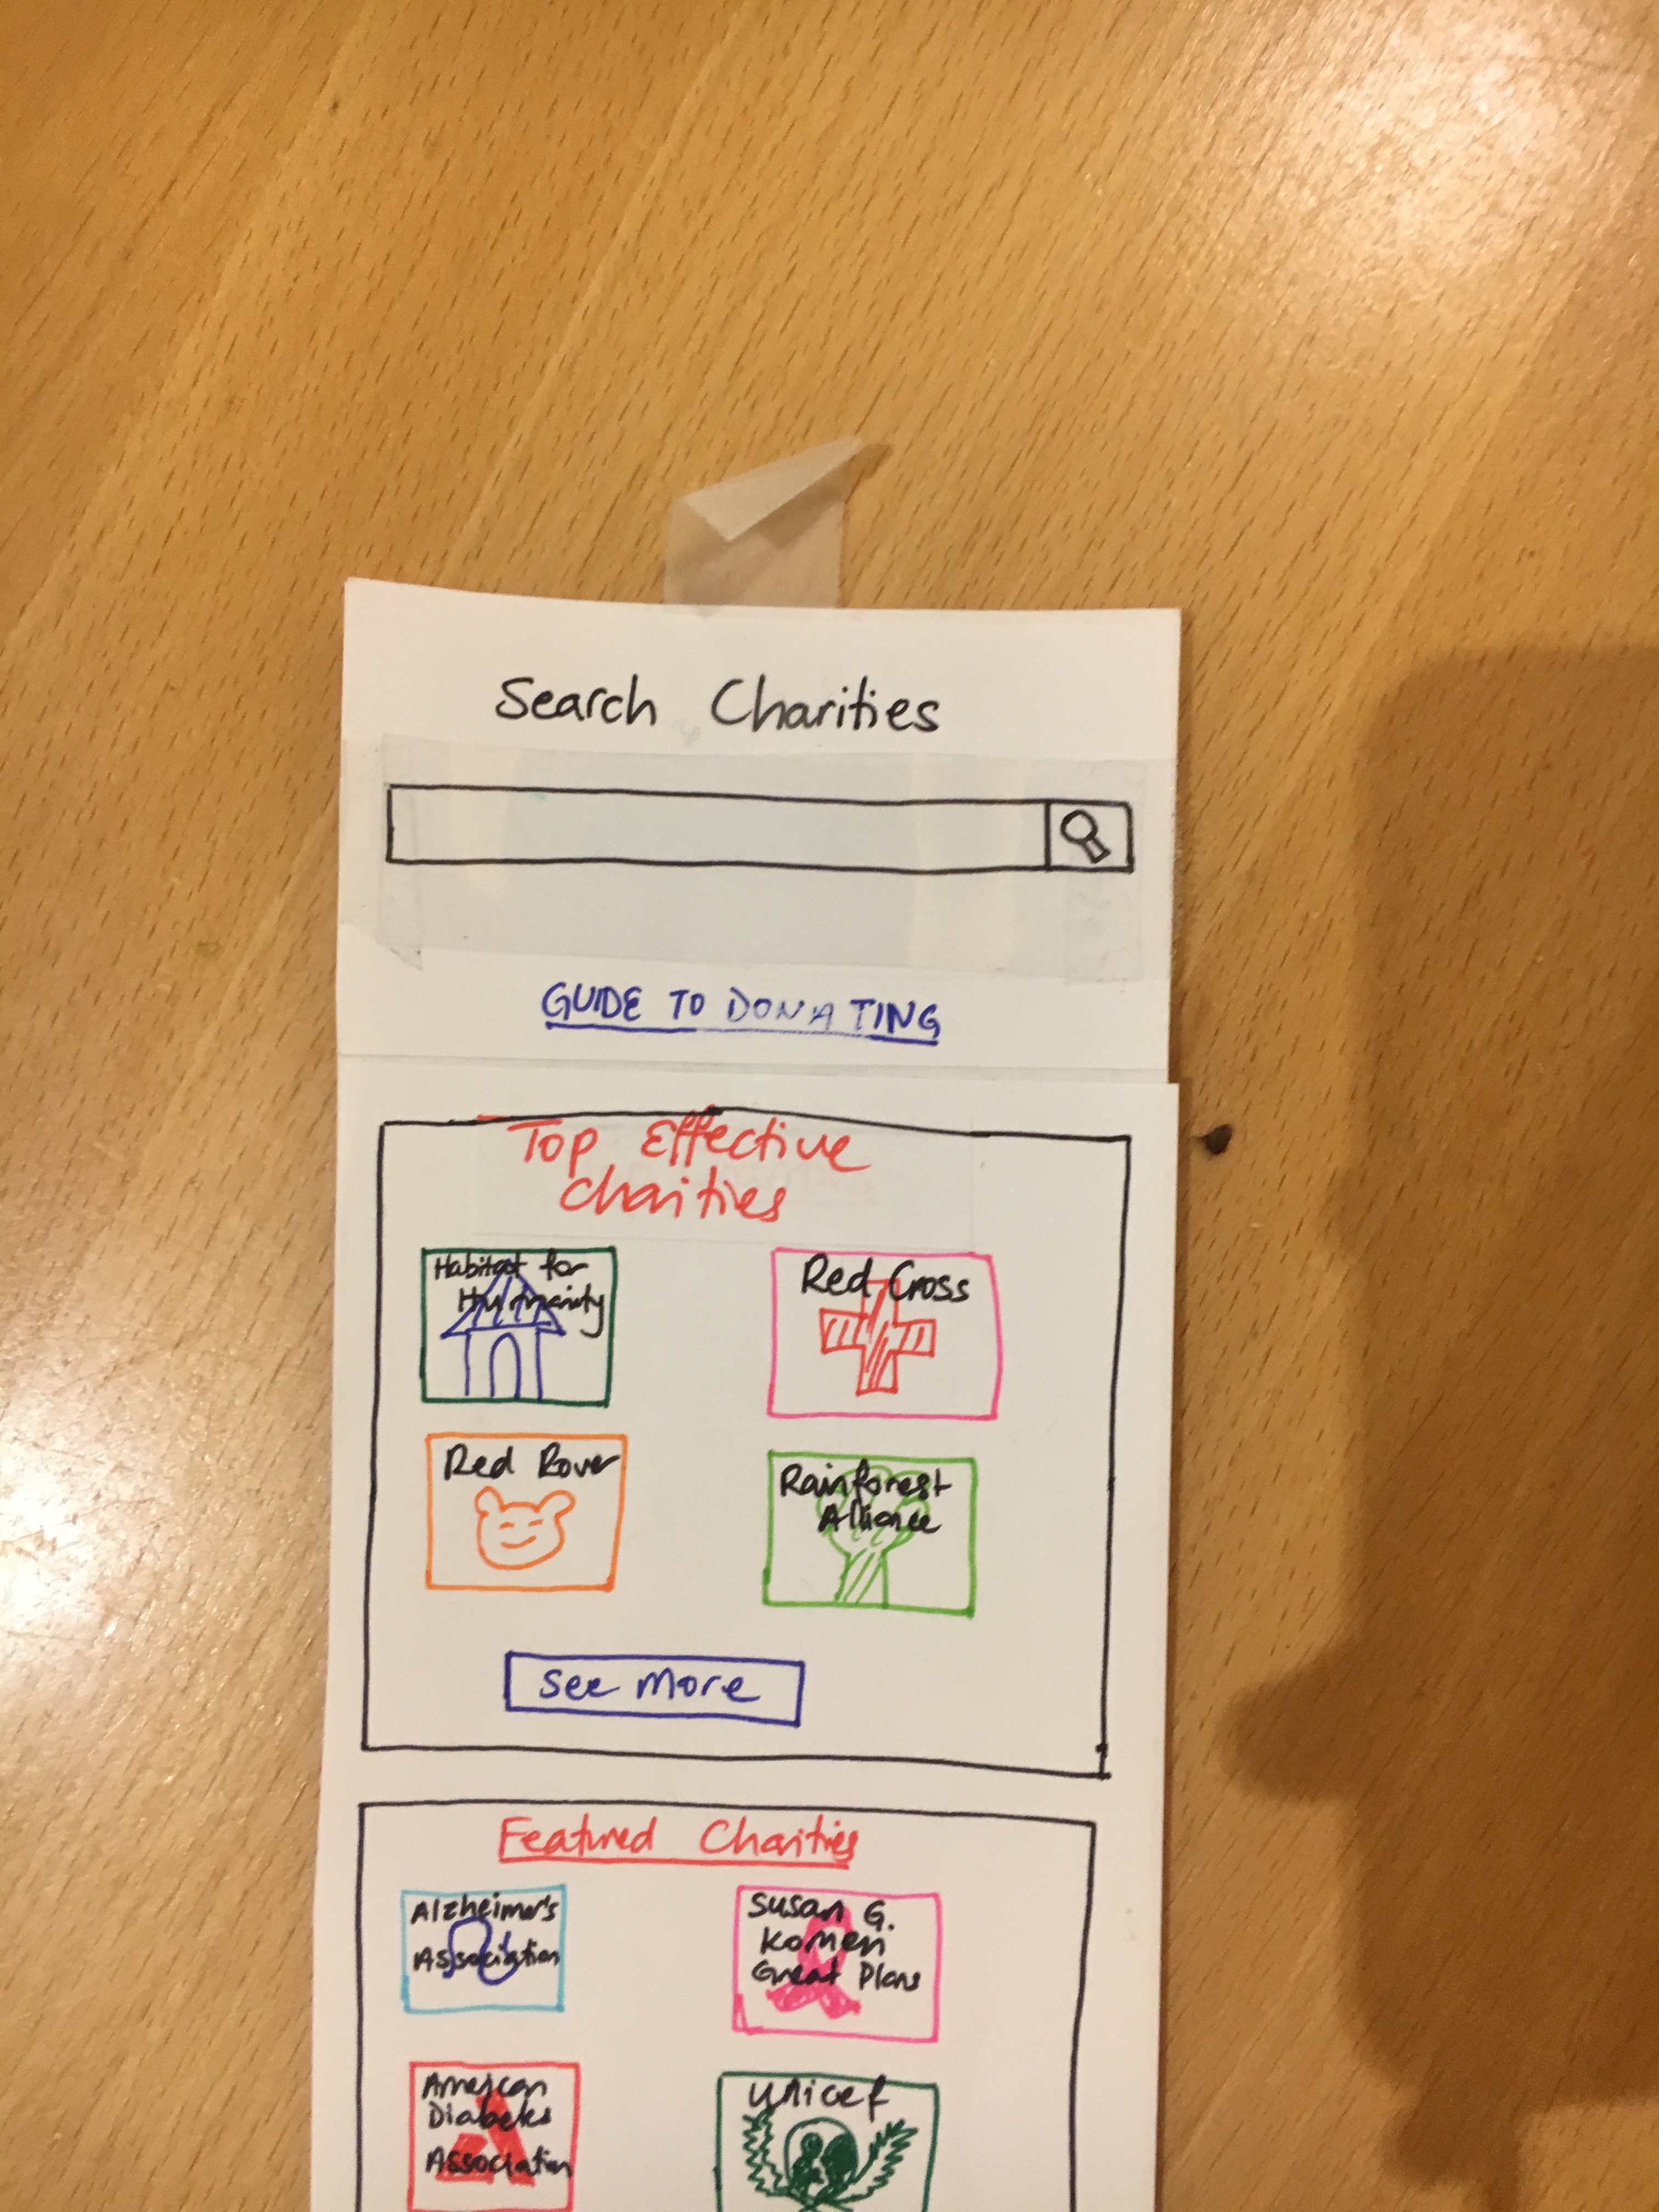 Search Charities
GUIDE TO DONATING
Top Effective
Charities
Habitat for
Humanity
Red Cross
Red Rover
Rainforest
Alliance
See More
Featured Charities
Alzheimer's
Association
Susan G.
Komen
Great Plains
American
Diabetes
Association
unicef